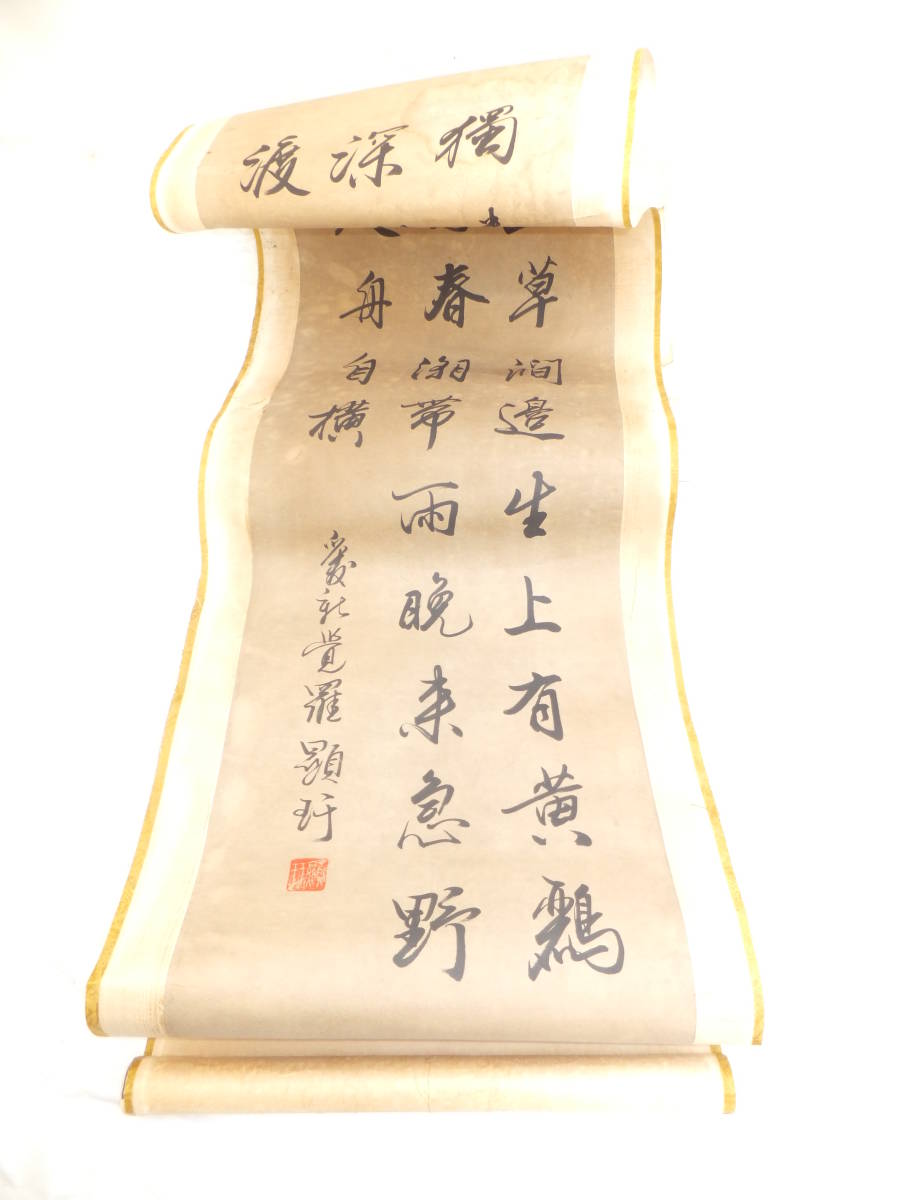 獨草澗邊生上有黄鸝
深春潮帶雨晚来急野
渡舟自橫
愛新覺羅顯玗
顯玗